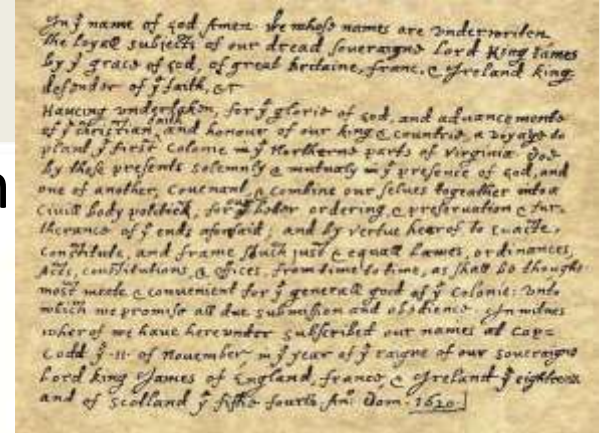 In ye name of god Amen. We whose names are vnderwriten,
the loyall subjects of our dread soveraigne Lord King James
by ye grace of god, of great britaine, franc, & Ireland king,
defender of ye faith, &c
Haveing undertaken, for ye glorie of god, and advancemente
of ye christian faith, and honour of our king & countrie, a voyage to
plant ye first colonie in ye Northerne parts of Virginia doe
by these presents solemnly & mutualy in ye presence of god, and
one of another, covenant, & combine our selves togeather into a
Civill body politick, for our better ordering, & preservation & fur-
therance of ye ends aforesaid; and by vertue hearof to enacte,
constitute, and frame shuch just & equall Lawes, ordinances,
Acts, constitutions, & offices, from time to time, as shall be thought
most meete & convenient for ye generall good of ye Colonie: vnto
which we promise all due submission and obedience. In witnes
wherof we have hereunder subscribed our names at Cap=
Codd ye 11 of November, in ye year of ye raigne of our soveraigne
Lord king James of England, france & Ireland ye eighteene
and of Scotland ye fiftie fourth Ano Dom. 1620